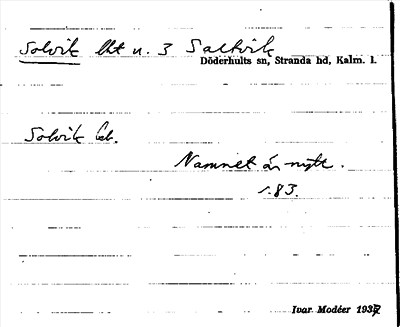 Solvik lht u. 3 Saltvik
Döderhults sn, Stranda hd, Kalm. l.
Solvik Eb.
Namnet är nytt.
s. 83.
Ivar Modéer 1937